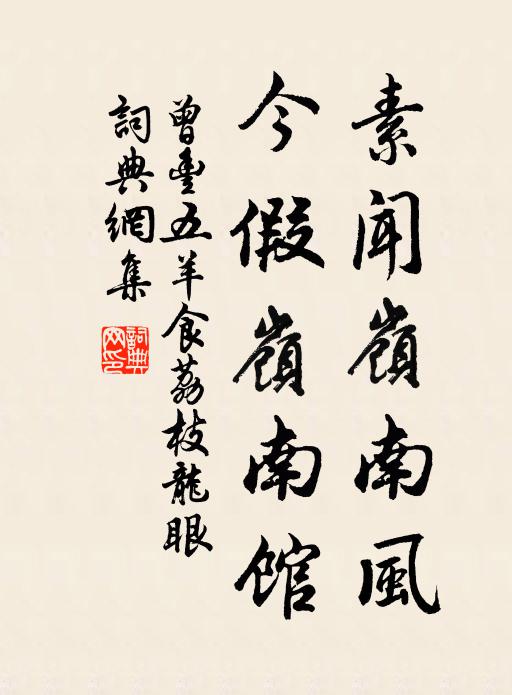 素聞嶺南風
今假嶺南館
曾豐五羊食荔枝龍眼
詞典網集
詞典
网印